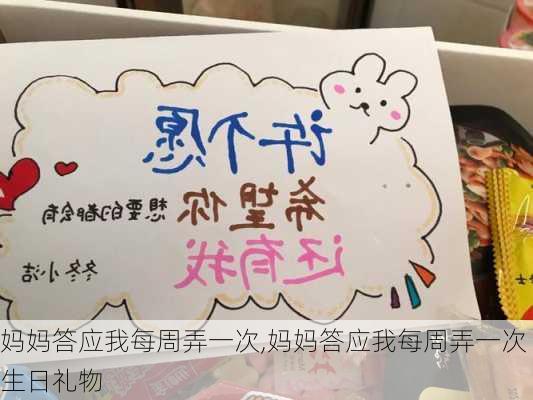 许个愿
希望你 想要的都会有
还有我
冬冬小洁
妈妈答应我每周弄一次,妈妈答应我每周弄一次
生日礼物